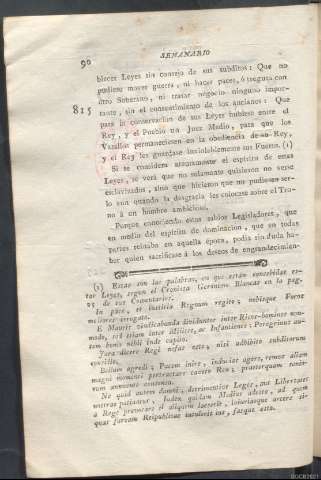 90
SEMANARIO
blecer Leyes sin consejo de sus subditos: Que no
pudiese mover guerra, ni hacer paces, ó treguas con
otro Soberano, ni tratar negocio ninguno impor-
815
tante, sin el consentimiento de los ancianos: Que
para la conservacion de sus Leyes hubiese entre el
Rey, y el Pueblo un Juez Medio, para que los
Vasallos permaneciesen en la obediencia de su Rey,
y el Rey les guardase inviolablemente sus Fueros. (1)
Si se considera atentamente el espíritu de estas
Leyes, se verá que no solamente quisieron no verse
esclavizados, sino que hicieron que no pudiesen ser-
lo aun quando la desgracia les colocase sobre el Tro-
no á un hombre ambicioso.
Porque conociendo estos sabios Legisladores, que
en medio del espíritu de dominacion, que en todas
partes reinaba en aquella época, podia sin duda ha-
ber quien sacrificase á los deseos de engrandecimien-
(1) Estas son las palabras, en que están concebidas es-
tas Leyes, segun el Cronista Gerónimo Blancas en la pag.
25 de sus Comentarios.
In pace, et justitia Regnum regito; nobisque Foros
meliores irrogato.
E Mauris vindicabunda dividuntor inter Ricos-homines non-
modo, sed etiam inter Milites, ac Infantiones: Peregrinus au-
tem homo nihil inde capito.
Jura dicere Regi nefas esto; nisi adhibito subditorum
consilio.
Bellum agredi; Pacem inire, inducias agere, remve aliam
magni momenti pertractare caveto Rex; praeterquam senio-
rum annuente consensu.
Ne quid autem damni, detrimentive Leges, aut Libertates
nostrae patiantur, Iudex quidam Medius adesto, ad quem
à Rege provocare si aliquem laeserit, iniuriasque arcere si-
quas forsam Reipublicae intulerit ius, fasque esto.